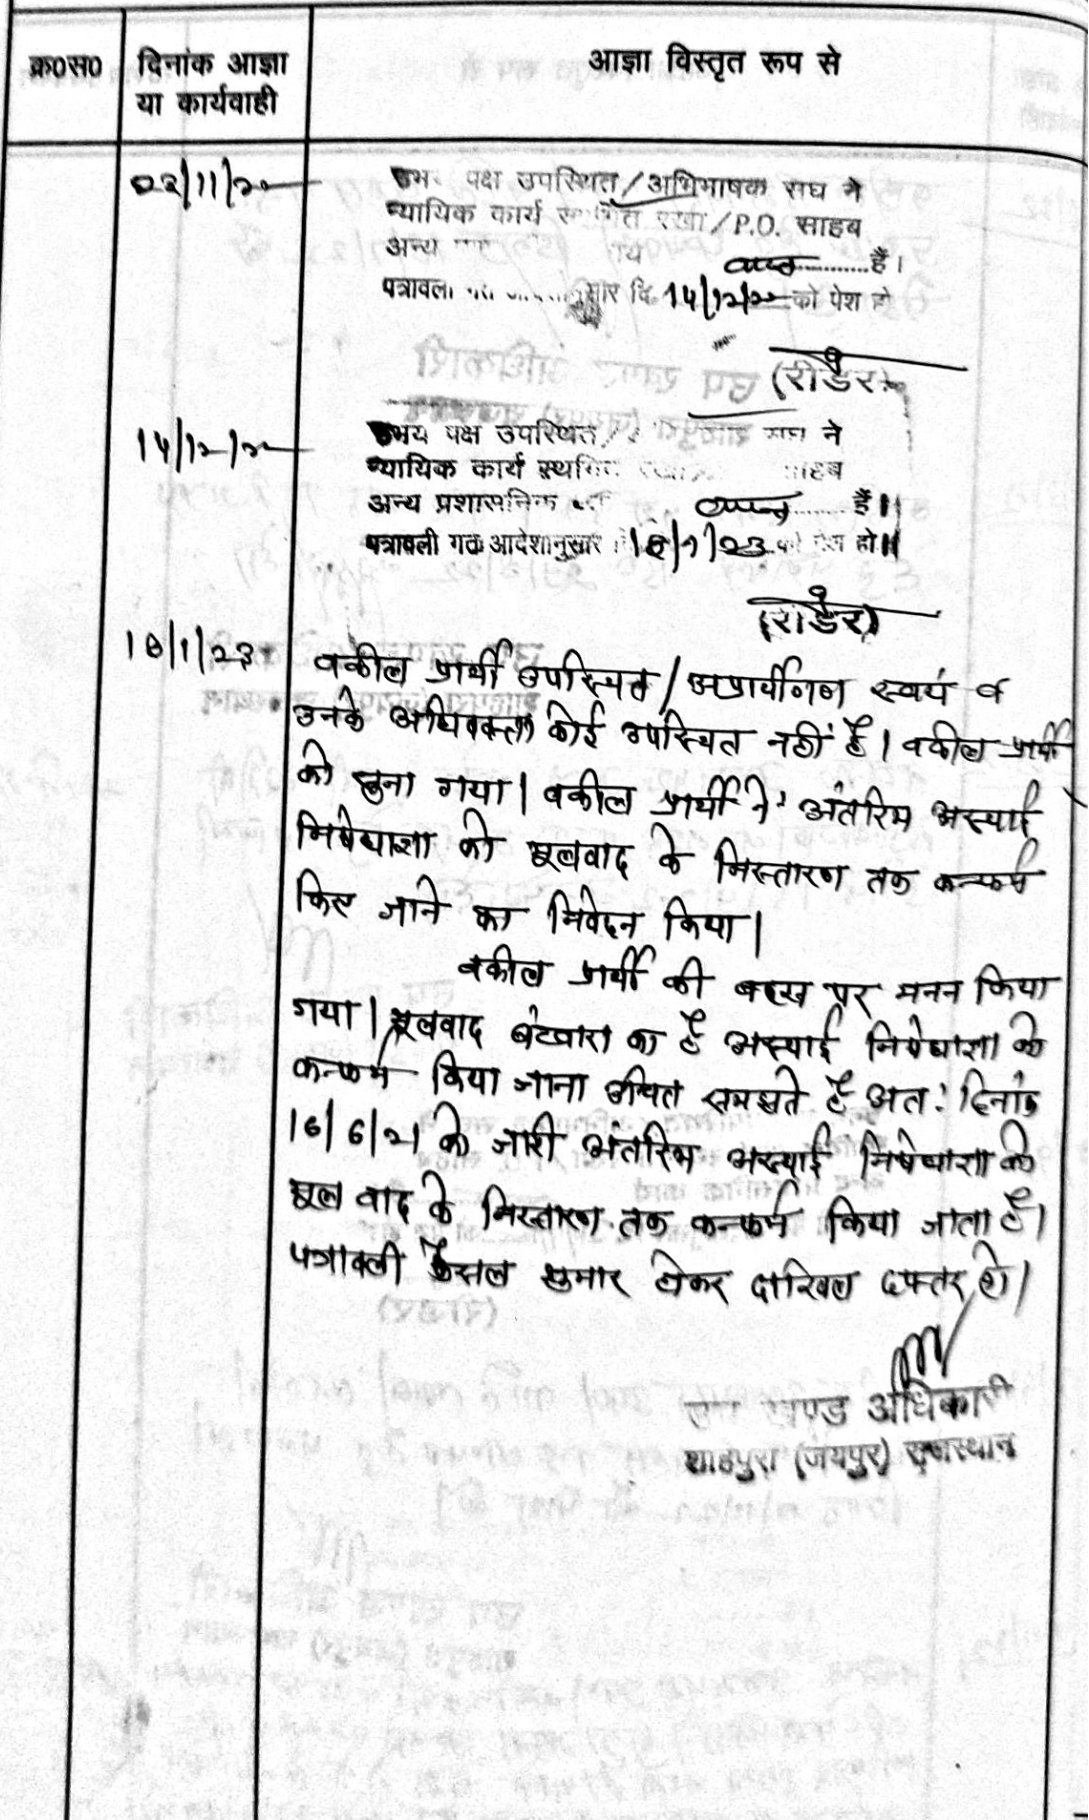 क्र०स० दिनांक आज्ञा या कार्यवाही आज्ञा विस्तृत रूप से
पक्ष उपस्थित/अभिभाषक संघ ने
न्यायिक कार्य रखा/P.O. साहब
अन्य व्यस्त हैं।
14/12/22 को पेश हो
(रीडर)
14/12/22
उभय पक्ष उपस्थित/ ने
न्यायिक कार्य स्थगित
अन्य प्रशासनिक व्यस्त हैं।
पत्रावली गत आदेशानुसार 18/1/23 को पेश हो।
(रीडर)
18/1/23
वकील प्रार्थी उपस्थित/अप्रार्थीगण स्वयं व
उनके अधिवक्ता कोई उपस्थित नहीं है। वकील प्रार्थी
को सुना गया। वकील प्रार्थी ने अंतरिम अस्थाई
निषेधाज्ञा को मूलवाद के निस्तारण तक कन्फर्म
किए जाने का निवेदन किया।
वकील प्रार्थी की बहस पर मनन किया
गया। मूलवाद बंटवारा का है अस्थाई निषेधाज्ञा को
कन्फर्म किया जाना उचित समझते है अत: दिनांक
16/6/21 को जारी अंतरिम अस्थाई निषेधाज्ञा को
मूल वाद के निस्तारण तक कन्फर्म किया जाता है।
पत्रावली फैसल शुमार होकर दाखिल दफ्तर हो।
उप खण्ड अधिकारी
शाहपुरा (जयपुर) राजस्थान